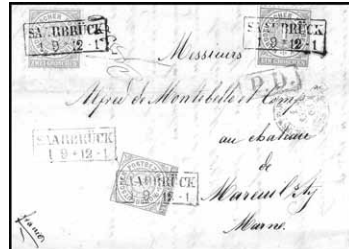 SAARBRÜCK
1 9 * 12 - 1
SAARBRÜCK
1 9 * 12 - 1
Messieurs
P.D.
Alfred de Montebello et Comp
SAARBRÜCK
1 9 * 12 - 1
au chateau
de
SAARBRÜCK
9 * 12 - 1
Mareuil s/Ay
Marne.
franco